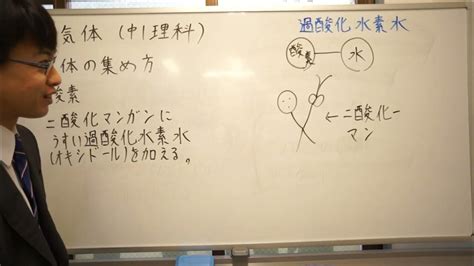 気体(中1理科)
体の集め方
酸素
二酸化マンガンに
うすい過酸化水素水
(オキシドール)を加える。
過酸化水素水
酸素
水
←二酸化ー
マン